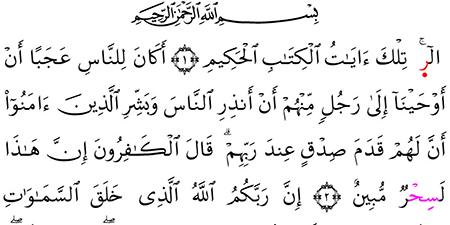 بِسْمِ ٱللَّهِ ٱلرَّحْمَٰنِ ٱلرَّحِيمِ
الٓرۚ تِلْكَ ءَايَٰتُ ٱلْكِتَٰبِ ٱلْحَكِيمِ ۝١ أَكَانَ لِلنَّاسِ عَجَبًا أَنْ
أَوْحَيْنَآ إِلَىٰ رَجُلٍ مِّنْهُمْ أَنْ أَنذِرِ ٱلنَّاسَ وَبَشِّرِ ٱلَّذِينَ ءَامَنُوٓا۟
أَنَّ لَهُمْ قَدَمَ صِدْقٍ عِندَ رَبِّهِمْۗ قَالَ ٱلْكَٰفِرُونَ إِنَّ هَٰذَا
لَسِحْرٌ مُّبِينٌ ۝٢ إِنَّ رَبَّكُمُ ٱللَّهُ ٱلَّذِى خَلَقَ ٱلسَّمَٰوَٰتِ